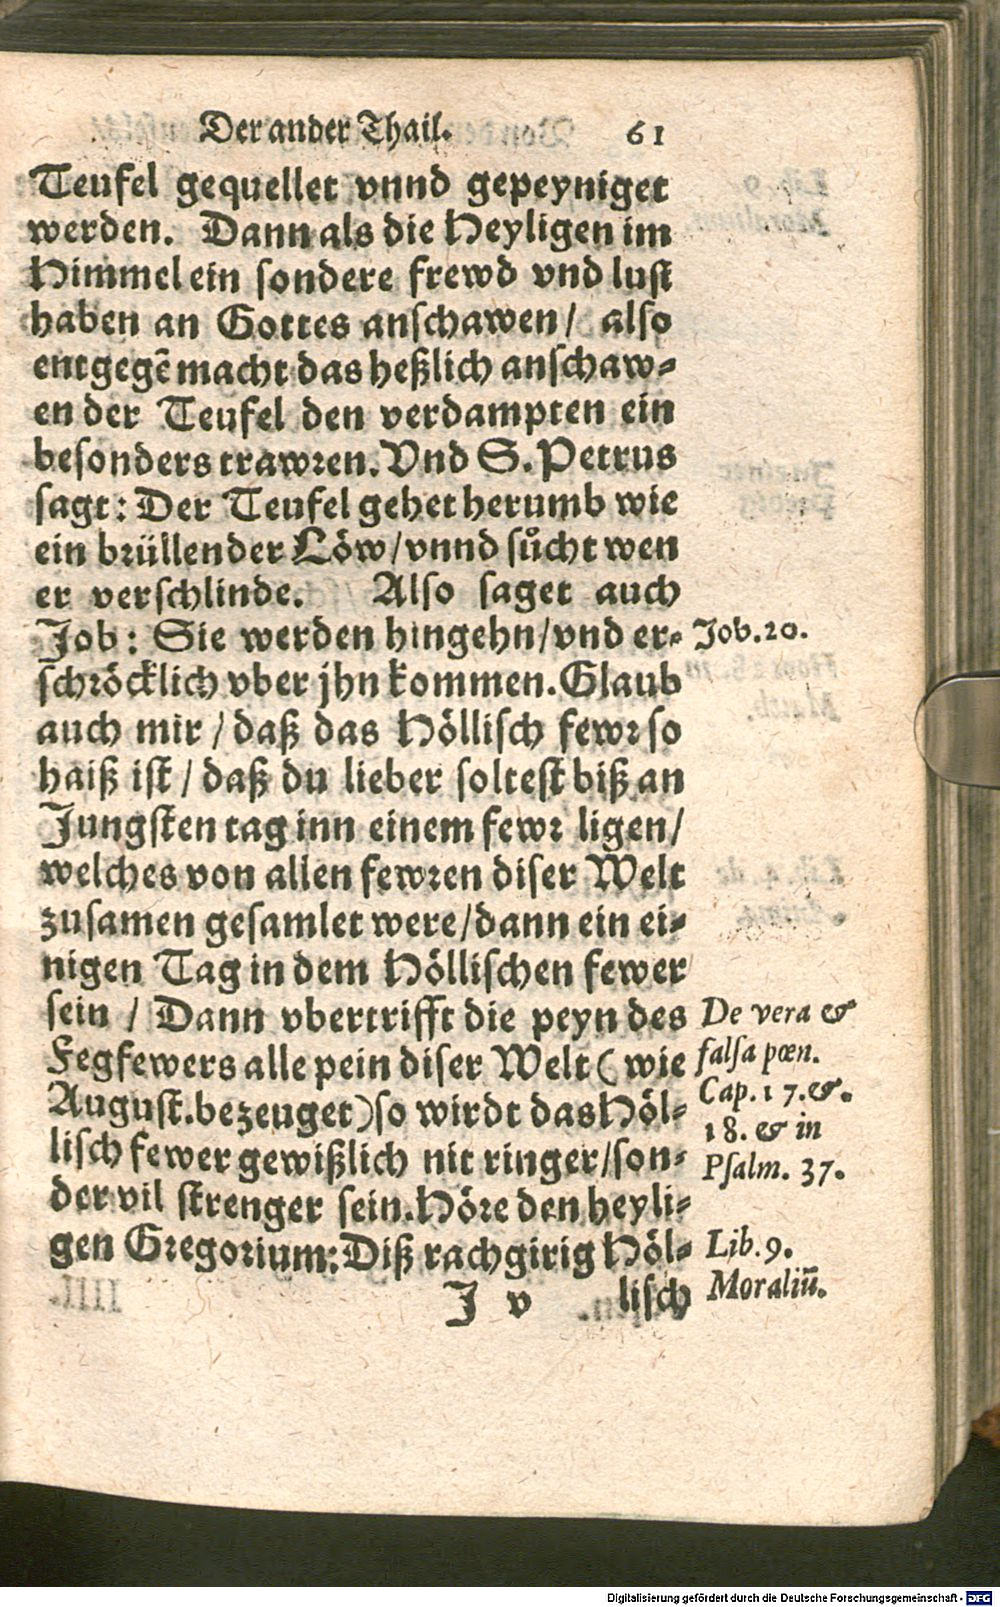 Der ander Thail. 61
Teufel gequellet vnnd gepeyniget
werden. Dann als die Heyligen im
Himmel ein sondere frewd vnd lust
haben an Gottes anschawen / also
entgegẽ macht das heßlich anschaw-
en der Teufel den verdampten ein
besonders trawren. Vnd S. Petrus
sagt: Der Teufel gehet herumb wie
ein brüllender Löw / vnnd sůcht wen
er verschlinde. Also saget auch
Job: Sie werden hingehn / vnd er- Job. 20.
schröcklich vber jhn kommen. Glaub
auch mir / daß das Höllisch fewr so
haiß ist / daß du lieber soltest biß an
Jungsten tag inn einem fewr ligen /
welches von allen fewren diser Welt
zusamen gesamlet were / dann ein ei-
nigen Tag in dem Höllischen fewer
sein / Dann vbertrifft die peyn des De vera &
Fegfewers alle pein diser Welt ( wie falsa pœn.
August. bezeuget ) so wirdt das Höl- Cap. 17. &.
lisch fewer gewißlich nit ringer / son- 18. & in
der vil strenger sein. Höre den heyli- Psalm. 37.
gen Gregorium: Diß rachgirig Höl- Lib. 9.
J v lisch Moraliū.
Digitalisierung gefördert durch die Deutsche Forschungsgemeinschaft - DFG